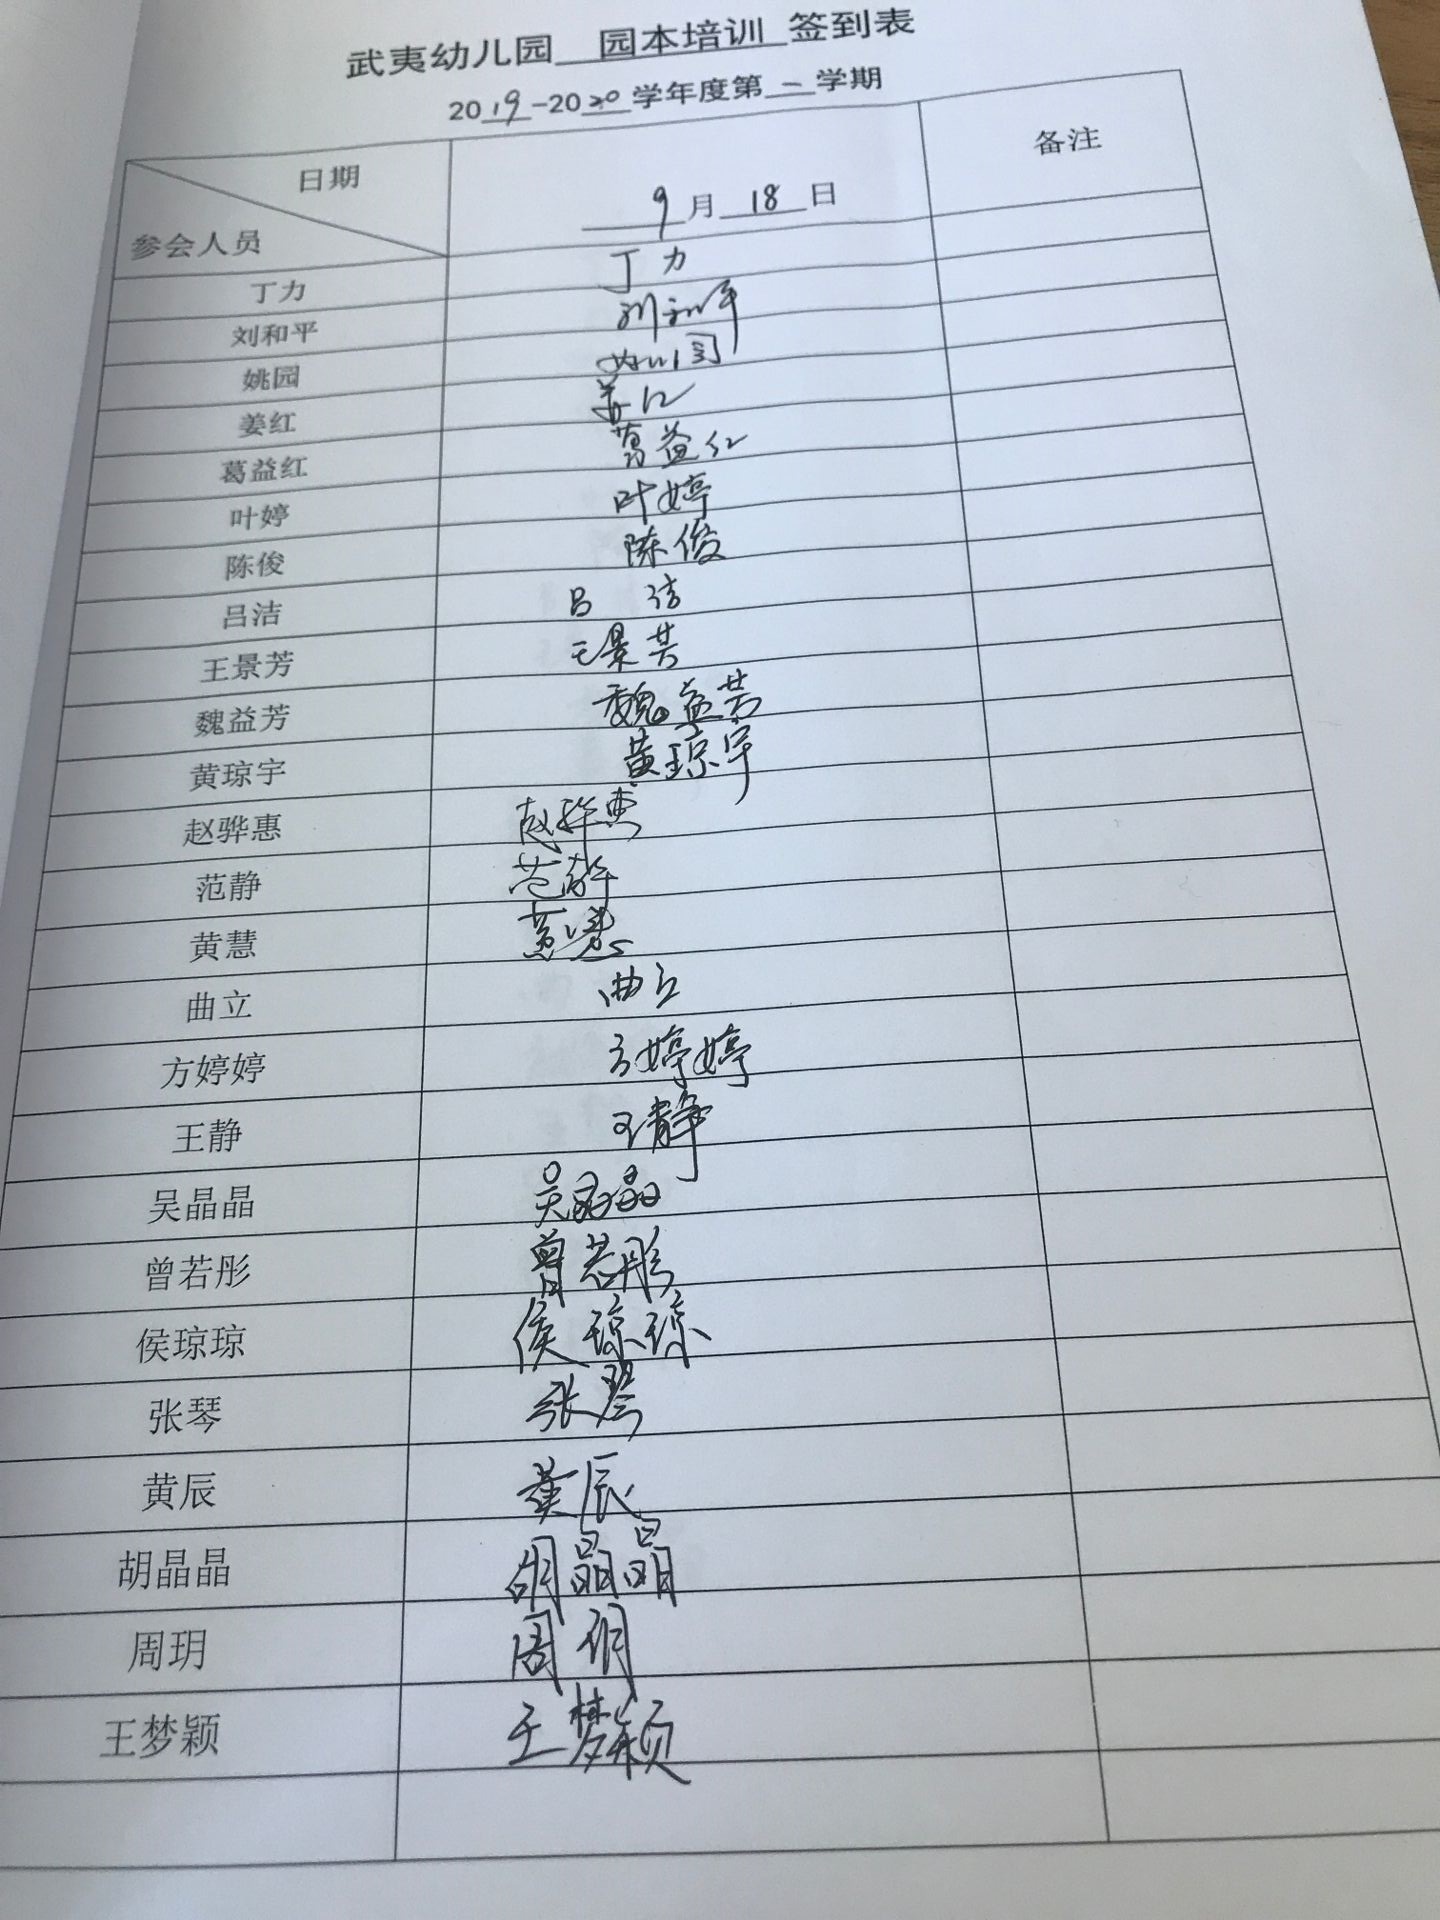 武夷幼儿园 园本培训 签到表
2019-2020学年度第一学期
日期
参会人员
9月18日
备注
丁力 丁力
刘和平 刘和平
姚园 姚园
姜红 姜红
葛益红 葛益红
叶婷 叶婷
陈俊 陈俊
吕洁 吕洁
王景芳 王景芳
魏益芳 魏益芳
黄琼宇 黄琼宇
赵骅惠 赵骅惠
范静 范静
黄慧 黄慧
曲立 曲立
方婷婷 方婷婷
王静 王静
吴晶晶 吴晶晶
曾若彤 曾若彤
侯琼琼 侯琼琼
张琴 张琴
黄辰 黄辰
胡晶晶 胡晶晶
周玥 周玥
王梦颖 王梦颖